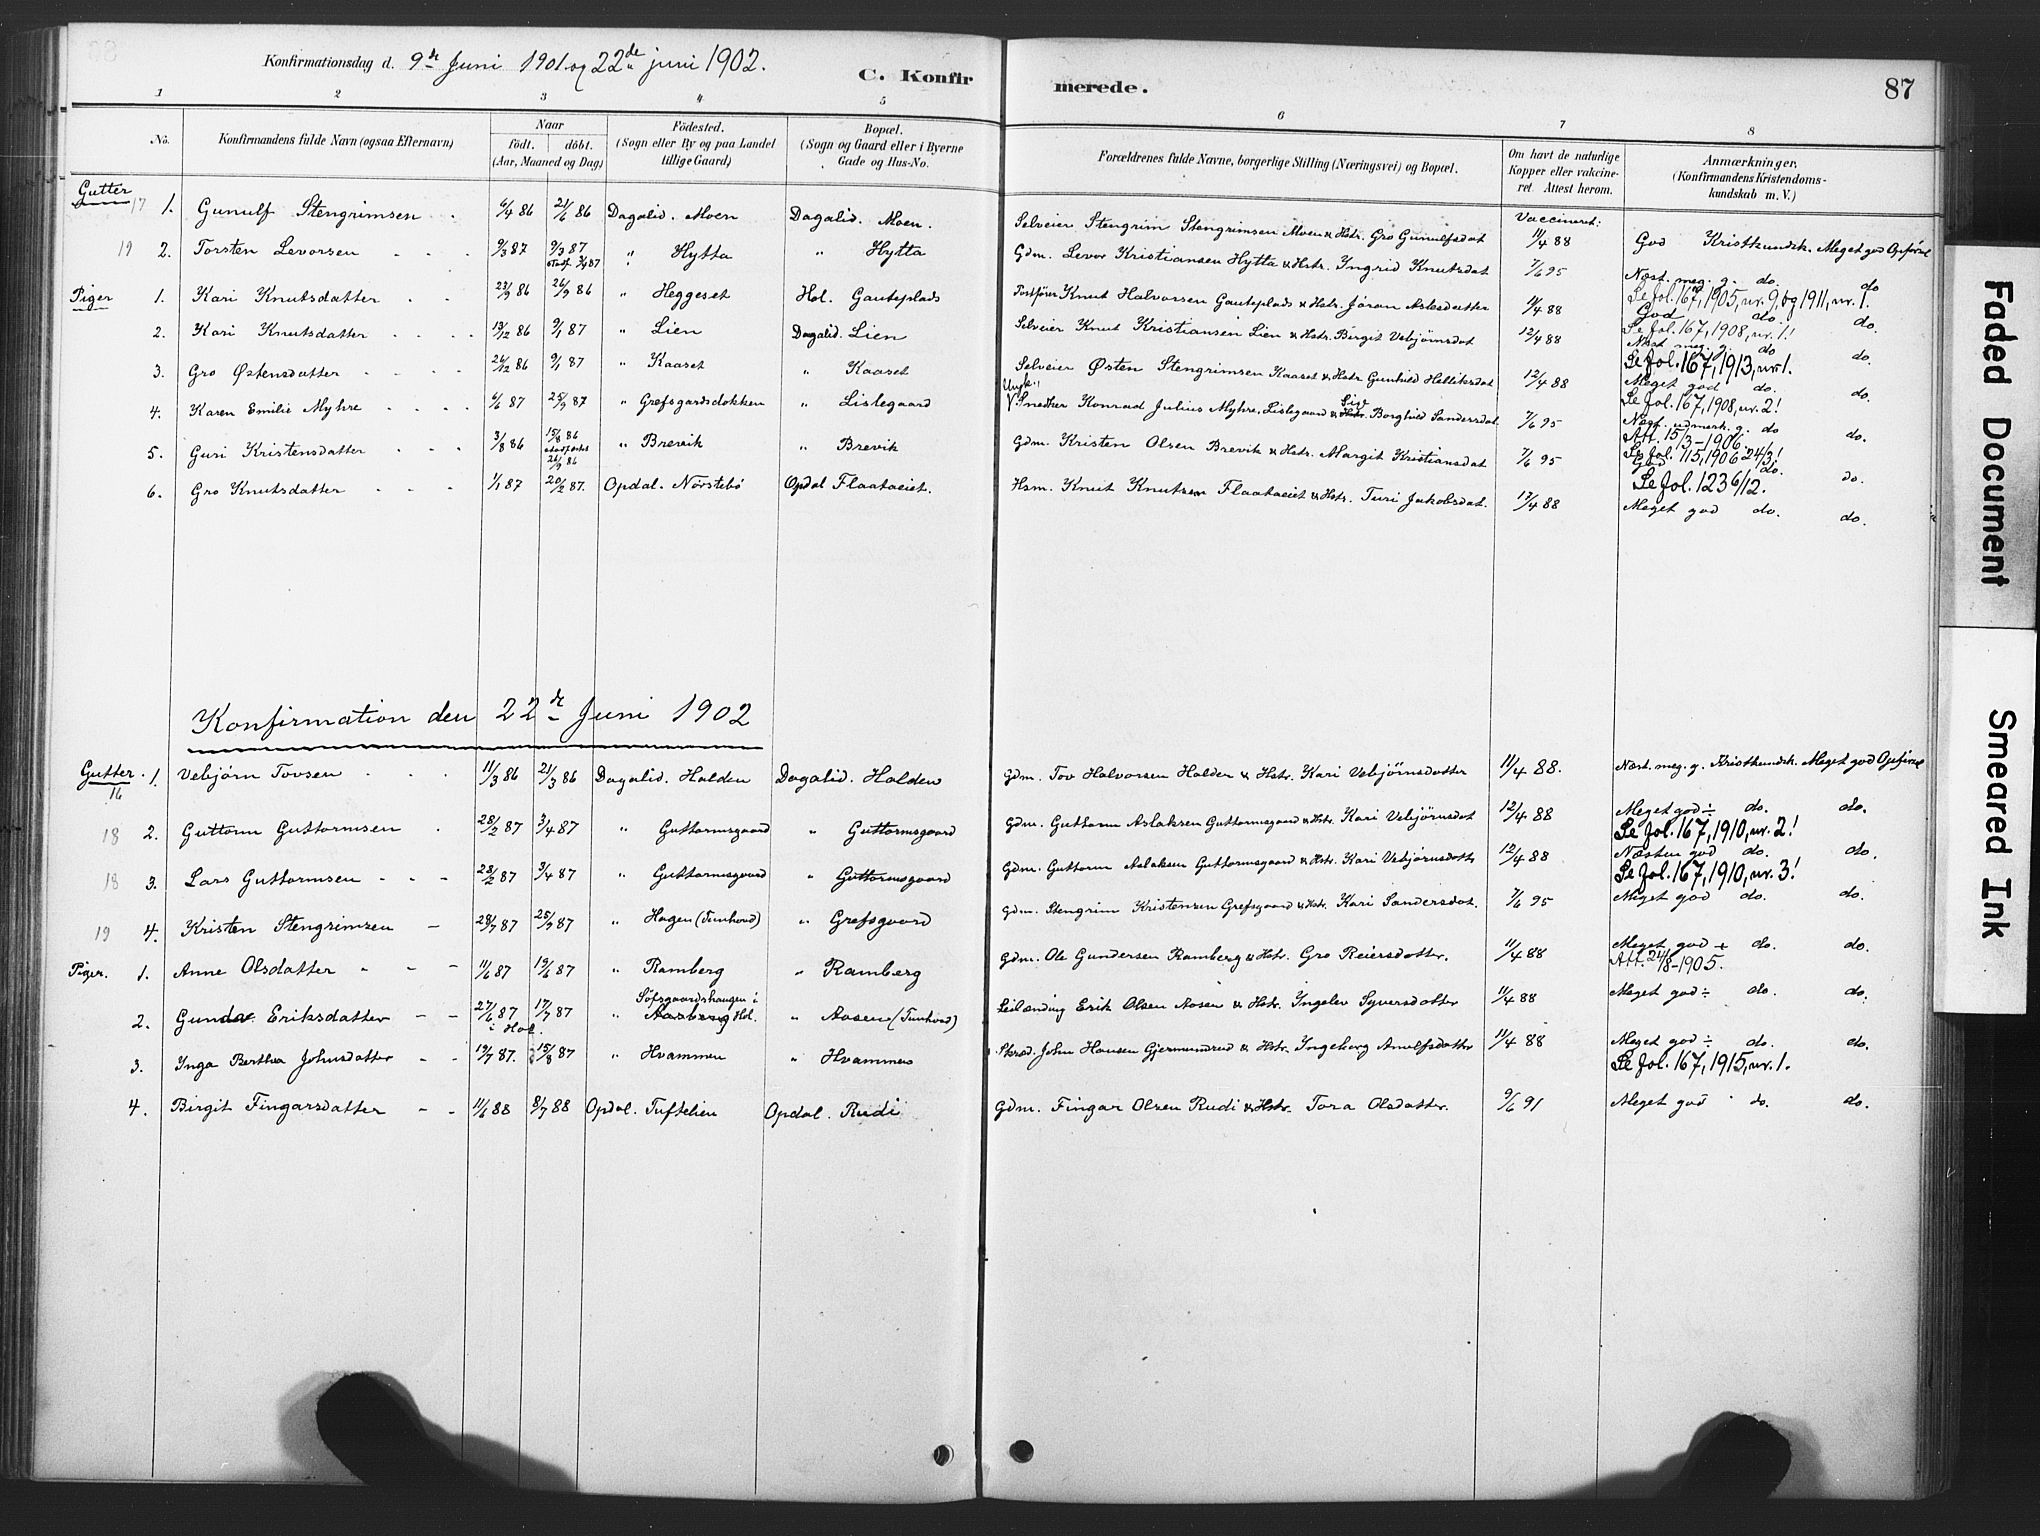 Konfirmationsdag d. 9de Juni 1901 og 22de juni 1902.
C. Konfirmerede.
87
1 2 3 4 5 6 7 8
No. Konfirmandens fulde Navn (ogsaa Efternavn) Naar födt. döbt. (Aar, Maaned og Dag) Födested. (Sogn eller By og paa Landet tillige Gaard) Bopæl. (Sogn og Gaard eller i Byerne Gade og Hus-No. Forældrenes fulde Navne, borgerlige Stilling (Næringsvei) og Bopæl. Om havt de naturlige Kopper eller vakcineret. Attest herom. Anmærkninger. (Konfirmandens Kristendomskundskab m. V.)
Gutter
Vaccineret:
17 1. Gunulf Stengrimsen 6/4 86 21/6 86 Dagalid. Moen Dagalid. Moen. Selveier Stengrim Stengrimsen Moen & Hstr. Gro Gunulfsdat 11/4 88 God Kristkundsk. Meget god Opförsel
19 2. Torsten Levorsen 9/3 87 9/3 87 stadf. 3/4 87 " Hytta " Hytta Gdm. Levor Kristiansen Hytta & Hstr. Ingrid Knutsdat 7/6 95 Næst. meg. g. do. do
Piger 1. Kari Knutsdatter 22/9 86 26/9 86 " Heggeset Hol. Gauteplads Postförer Knut Halvorsen Gauteplads & Hstr. Jöran Aslesdatter 11/4 88 God do. do.
Se Jol. 167, 1905, nr. 9, og 1911, nr. 1.
2. Kari Knutsdatter 19/12 86 9/1 87 " Lien Dagalid. Lien Selveier Knut Kristiansen Lien & Hstr. Birgit Vebjörnsdat 12/4 88 Næst meg. g. do do.
Se Jol. 167, 1908, nr. 1!
3. Gro Østensdatter 26/12 86 9/1 87 " Kaaset " Kaaset Selveier Østen Stengrimsen Kaaset & Hstr Gunhild Helliksdat 12/4 88 Meget god do. do.
Se Jol. 167, 1913, nr. 1.
4. Karen Emilie Myhre 6/6 87 25/9 87 " Grefsgardsdokken " Lislegaard Ungk. Smedker Konrad Julius Myhre, Lislegaard & Borghild Sandersdat. 7/6 95 Næst udmerk. g. do do.
Se Jol. 167, 1908, nr. 2!
Att. 15/3-1906.
5. Guri Kristensdatter 3/8 86 15/8 86 stadfæstet 26/9 86 " Brevik " Brevik Gdm. Kristen Olsen Brevik & Hstr. Margit Kristiansdat 7/6 95 God do. do.
Se Jol. 715, 1906 24/3!
Se Jol. 123 6/12.
6. Gro Knutsdatter 1/1 87 20/2 87. Opdal. Nörstebö Opdal Flaataeiet. Hsm. Knut Knutsen Flaataeiet & Hstr. Turi Jakobsdat. 17/4 88 Meget god do. do.
Konfirmation den 22de Juni 1902
Gutter. 16 1. Vebjörn Tovsen 11/3 86 21/3 86 Dagalid. Halden Dagalid. Halden Gdm. Tov Halvorsen Halden & Hstr. Kari Vebjörnsdatter 11/4 88. Næst. meg. g. Kristkundsk. Meget god Opförsel
18 2. Guttorm Guttormsen 28/2 87 3/4 87 " Guttormsgaard " Guttormsgaard Gdm. Guttorm Aslaksen Guttormsgaard & Hstr. Kari Vebjörnsdat 12/4 88 Meget god ÷ do. do.
Se Jol. 167, 1910, nr. 2!
18 3. Lars Guttormsen 28/2 87 3/4 87 " Guttormsgaard " Guttormsgaard Gdm. Guttorm Aslaksen Guttormsgaard & Hstr. Kari Vebjörnsdattr 12/4 88 Næsten god do. do.
Se Jol. 167, 1910, nr. 3!
19 4. Kristen Stengrimsen 28/7 87 25/9 87 " Hagen (Tunhovd) " Grefsgaard Gdm. Stengrim Kristensen Grefsgaard & Hstr. Kari Sandersdat. 7/6 95 Meget god do. do.
Piger. 1. Anne Olsdatter 11/6 87 19/6 87 " Ramberg " Ramberg Gdm. Ole Gundersen Ramberg & Hstr. Gro Reiersdatter. 11/4 88 Meget god + do. do.
Att. 24/8-1905.
2. Eriksdatter 27/6 87 17/7 87 i Hol. " Söfsgaardshaugen i Hol. " Aasen (Tunhovd) Leilænding Erik Olsen Aasen & Hstr. Ingelev Syversdatter 11/4 88 Meget god ÷ do. do.
3. Inga Bertha Johnsdatter 19/7 87. 15/8 87 " Hvammen " Hvammen Skræd. John Hansen Gjermundrud & Hstr. Ingeborg Arnulfsdattr 11/4 88 Meget god ÷ do. do.
Se Jol. 167, 1915, nr. 1.
4. Birgit Fingarsdatter 11/6 88 8/7 88 Opdal. Tuftelien Opdal. Rudi Gdm. Fingar Olsen Rudi & Hstr. Tora Olsdatter. 9/6 91 Meget god do. do.
Faded Document
Smeared Ink